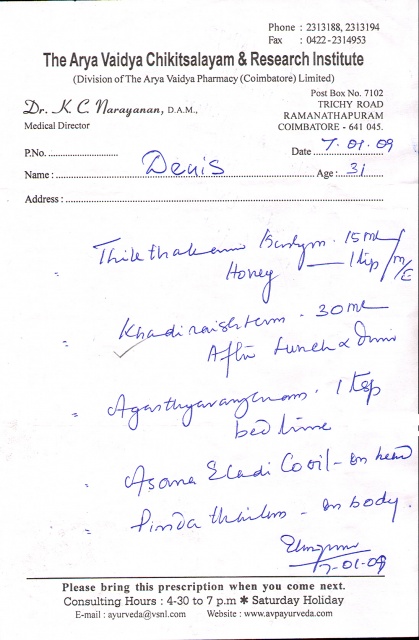 Phone : 2313188, 2313194
Fax : 0422-2314953
The Arya Vaidya Chikitsalayam & Research Institute
(Division of The Arya Vaidya Pharmacy (Coimbatore) Limited)
Dr. K. C. Narayanan, D.A.M.,
Medical Director
Post Box No. 7102
TRICHY ROAD
RAMANATHAPURAM
COIMBATORE - 641 045.
P.No. Date 7.01.09
Name : Denis Age : 31
Address :
15 ml
Honey 1 tsp / M/E
30 ml
After Lunch &
1 tsp
bed time
Asana Eladi - on head
Pinda - on body.
7-01-09
Please bring this prescription when you come next.
Consulting Hours : 4-30 to 7 p.m ✱ Saturday Holiday
E-mail : ayurveda@vsnl.com Website : www.avpayurveda.com